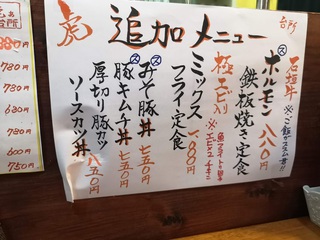 虎 追加メニュー 台所
石垣丼 ※ご飯がススム君!!
ス ホルモン鉄板焼き定食 八八〇円
極 エビ入り
ミックスフライ定食 一、一〇〇円
※エビ×2 チキン
ス みそ豚丼 七五〇円
ス 豚キムチ丼 七五〇円
厚切り豚カツ
ソースカツ丼 八五〇円
台所
880円
780円
730円
680円
780円
600円
750円